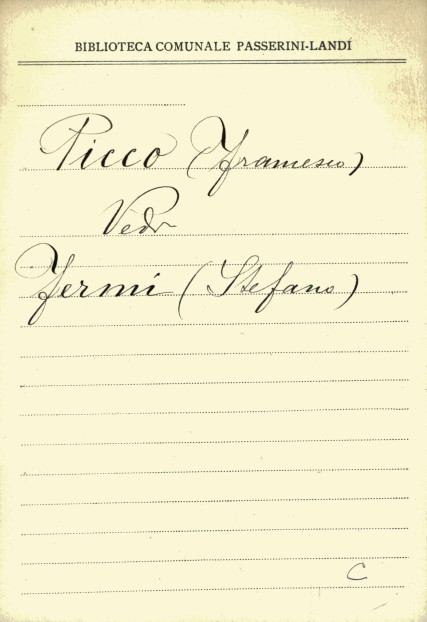 BIBLIOTECA COMUNALE PASSERINI-LANDI
Picco (Francesco)
Vedi
Fermi (Stefano)
C